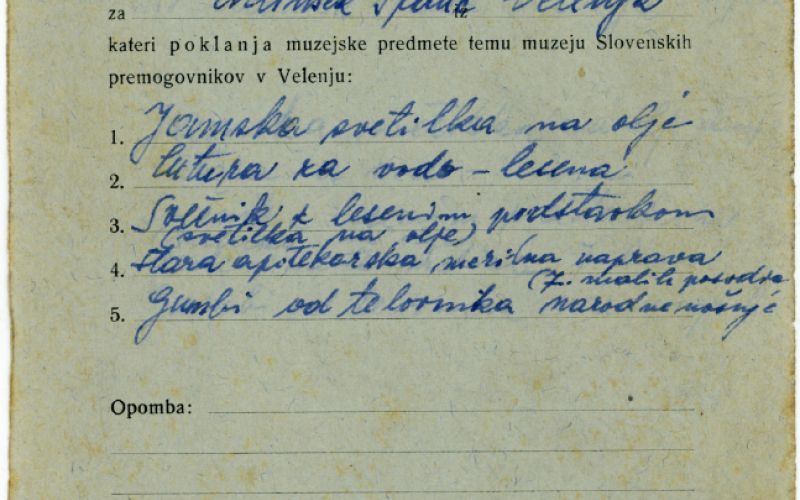 za iz Velenja
kateri poklanja muzejske predmete temu muzeju Slovenskih
premogovnikov v Velenju:
1. Jamska svetilka na olje
2. čutura za vodo - lesena
3. Svečnik z lesenim podstavkom
(svetilka na olje)
4. stara apotekarska merilna naprava
(7. malih posodic
5. Gumbi od telovnika narodne nošnje
Opomba: